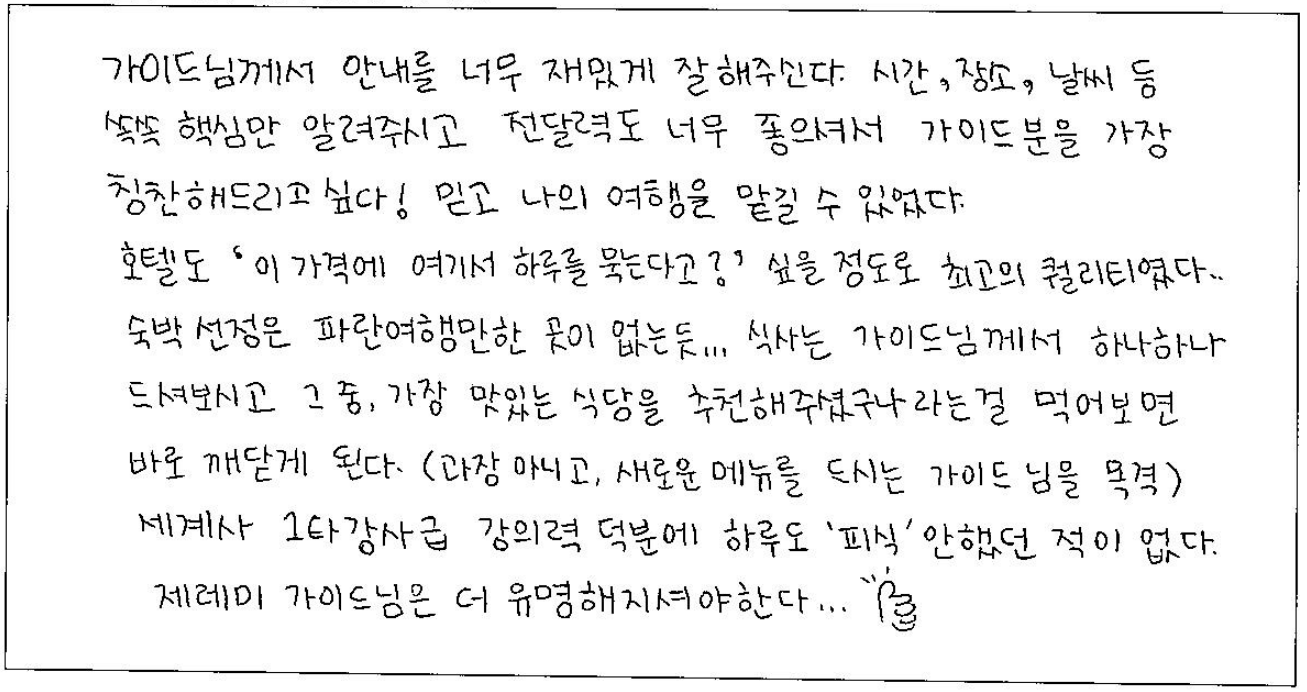 가이드님께서 안내를 너무 재밌게 잘해주신다. 시간, 장소, 날씨 등
쏙쏙 핵심만 알려주시고 전달력도 너무 좋으셔서 가이드분을 가장
칭찬해드리고 싶다! 믿고 나의 여행을 맡길 수 있었다.
호텔도 '이 가격에 여기서 하루를 묵는다고?' 싶을 정도로 최고의 퀄리티였다..
숙박 선정은 파란여행만한 곳이 없는듯... 식사는 가이드님께서 하나하나
드셔보시고 그 중, 가장 맛있는 식당을 추천해주셨구나라는걸 먹어보면
바로 깨닫게 된다. (과장 아니고, 새로운 메뉴를 드시는 가이드님을 목격)
세계사 1타강사급 강의력 덕분에 하루도 '피식' 안했던 적이 없다.
제레미 가이드님은 더 유명해지셔야한다...